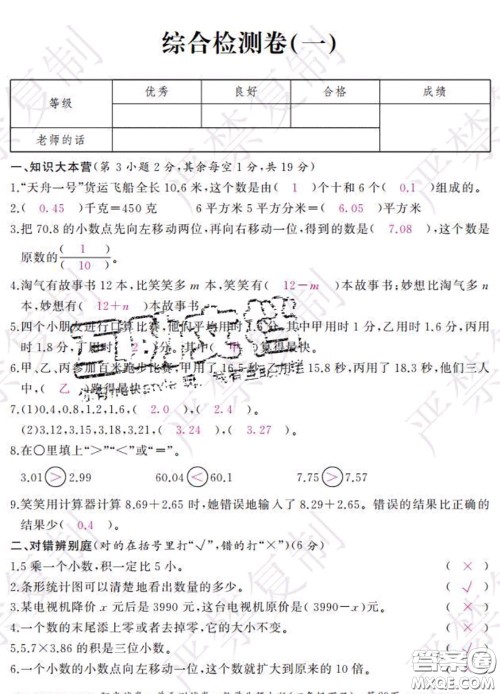 综合检测卷(一)
等级 优秀 良好 合格 成绩
老师的话
一、知识大本营(第 3 小题 2 分,其余每空 1 分,共 19 分)
1.“天舟一号”货运飞船全长 10.6 米,这个数是由( 1 )个十和 6 个( 0.1 )组成的。
2.( 0.45 )千克=450 克 6 平方米 5 平方分米=( 6.05 )平方米
3.把 70.8 的小数点先向左移动两位,再向右移动一位,得到的数是( 7.08 ),这个数是
原数的( 1 )/( 10 )。
4.淘气有故事书 12 本,比笑笑多 m 本,笑笑有( 12-m )本故事书;妙想比淘气多 n
本,妙想有( 12+n )本故事书。
5.四个小朋友进行口算比赛,他们平均用时 1.5 分,其中甲用时 1 分,乙用时 1.6 分,丙
用时 1.8 分,丁用时 分。其中( )算得最快。
6.甲、乙、丙参加百米跑步比赛,甲用了 16.5 秒,乙用了 15.8 秒,丙用了 18.3 秒,他们三人
中,( 乙 )跑得最快。
7.(1)0.4,0.8,1.2,1.6,( 2.0 ),( 2.4 )
(2)3.12,3.15,3.18,3.21,( 3.24 ),( 3.27 )
8.在○里填上“>”“<”或“=”。
3.01>2.99 60.04<60.1 7.75>7.57
9.笑笑用计算器计算 8.69+2.65 时,她错误地输入了 8.29+2.65。错误的结果比正确的
结果少( 0.4 )。
二、对错辨别庭(对的在括号里打“√”,错的打“×”)(6 分)
1.5 乘一个小数,积一定比 5 小。 ( × )
2.条形统计图可以清楚地看出数量的多少。 ( √ )
3.某电视机降价 x 元后是 3990 元,这台电视机原价是(3990-x)元。 ( × )
4.一个数的末尾添上零或者去掉零,它的大小不变。 ( × )
5.5.7×3.86 的积是三位小数。 ( × )
6.一个小数的小数点向左移动一位,这个数就扩大到原来的 10 倍。 ( × )
严禁复制
严禁复制
严禁复制